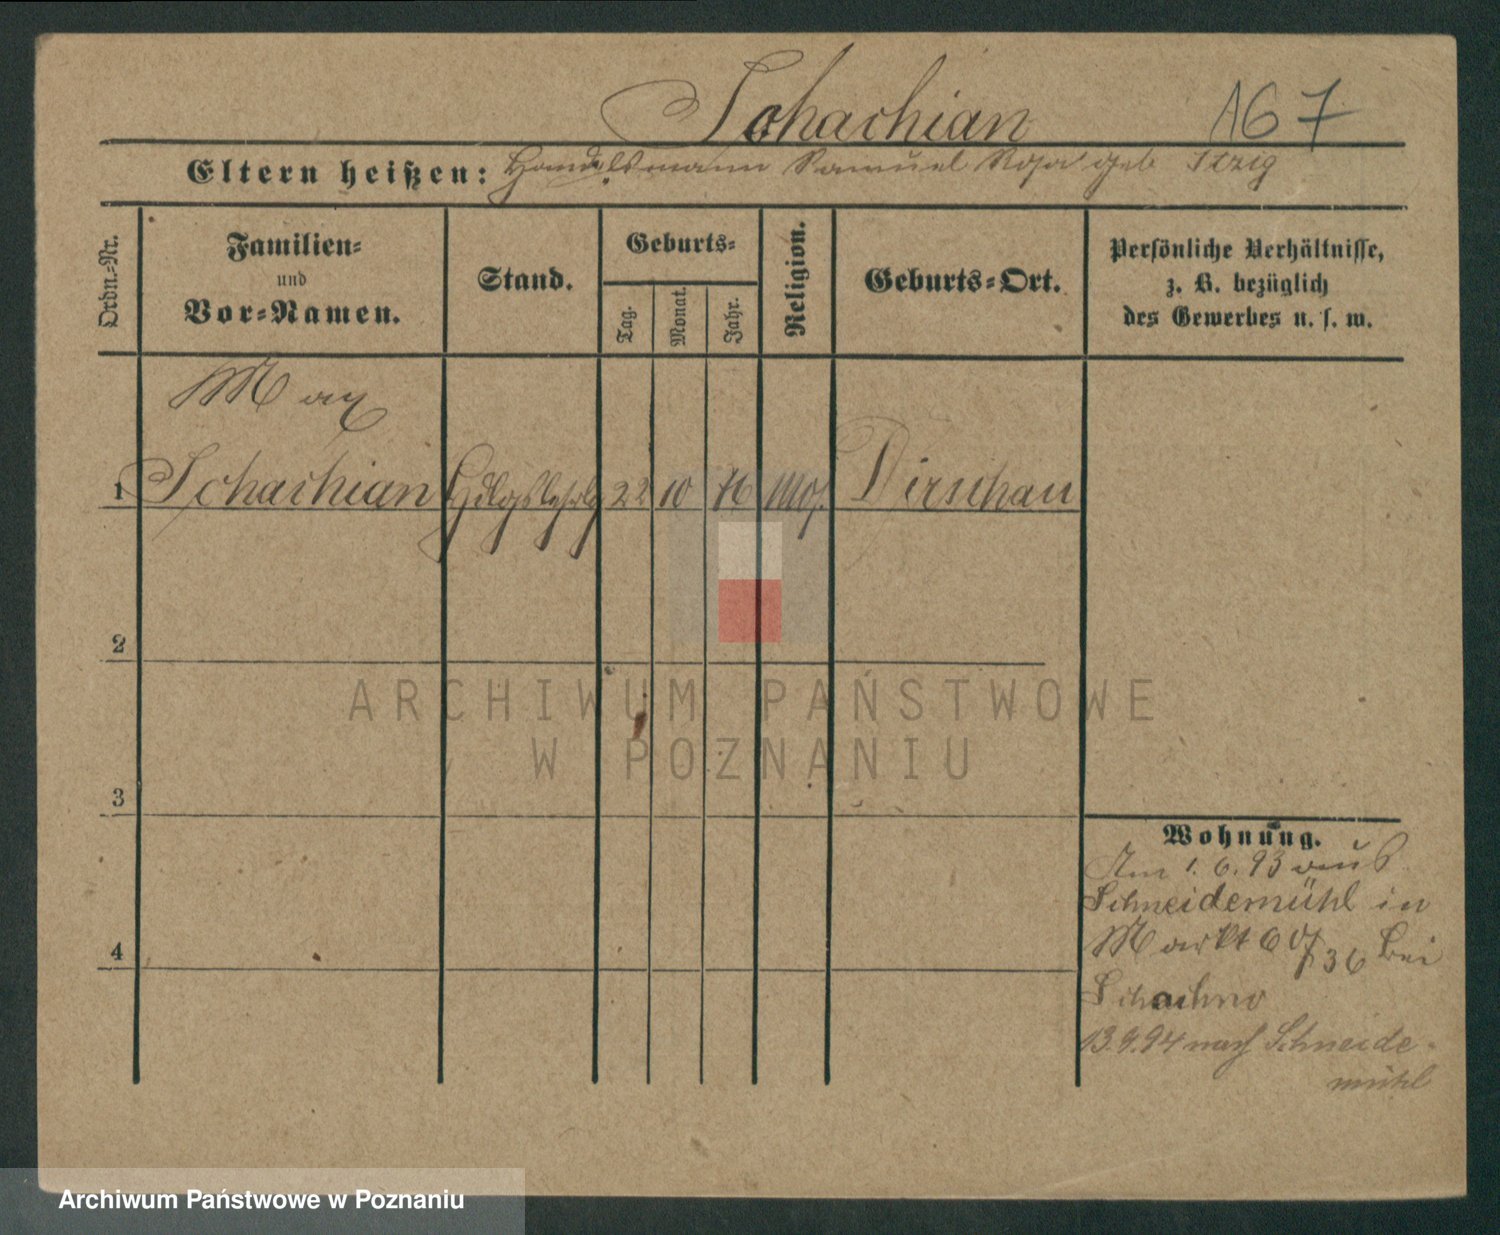 Schachian 167
Eltern heißen: Handelsmann Samuel Rosa geb Itzig
Ordn.-Nr.
Familien-
und
Vor-Namen.
Stand.
Geburts-
Tag.
Monat.
Jahr.
Religion.
Geburts-Ort.
Persönliche Verhältnisse,
z. B. bezüglich
des Gewerbes u. s. w.
Max
1 Schachian Hdlgslehrlg 22 10 76 Mos. Dirschau
2
3
4
Wohnung.
Am 1. 6. 93 aus
Schneidemühl in
Markt 36 bei
Schachno
13.9.94 nach Schneide-
mühl
ARCHIWUM PAŃSTWOWE
W POZNANIU
Archiwum Państwowe w Poznaniu